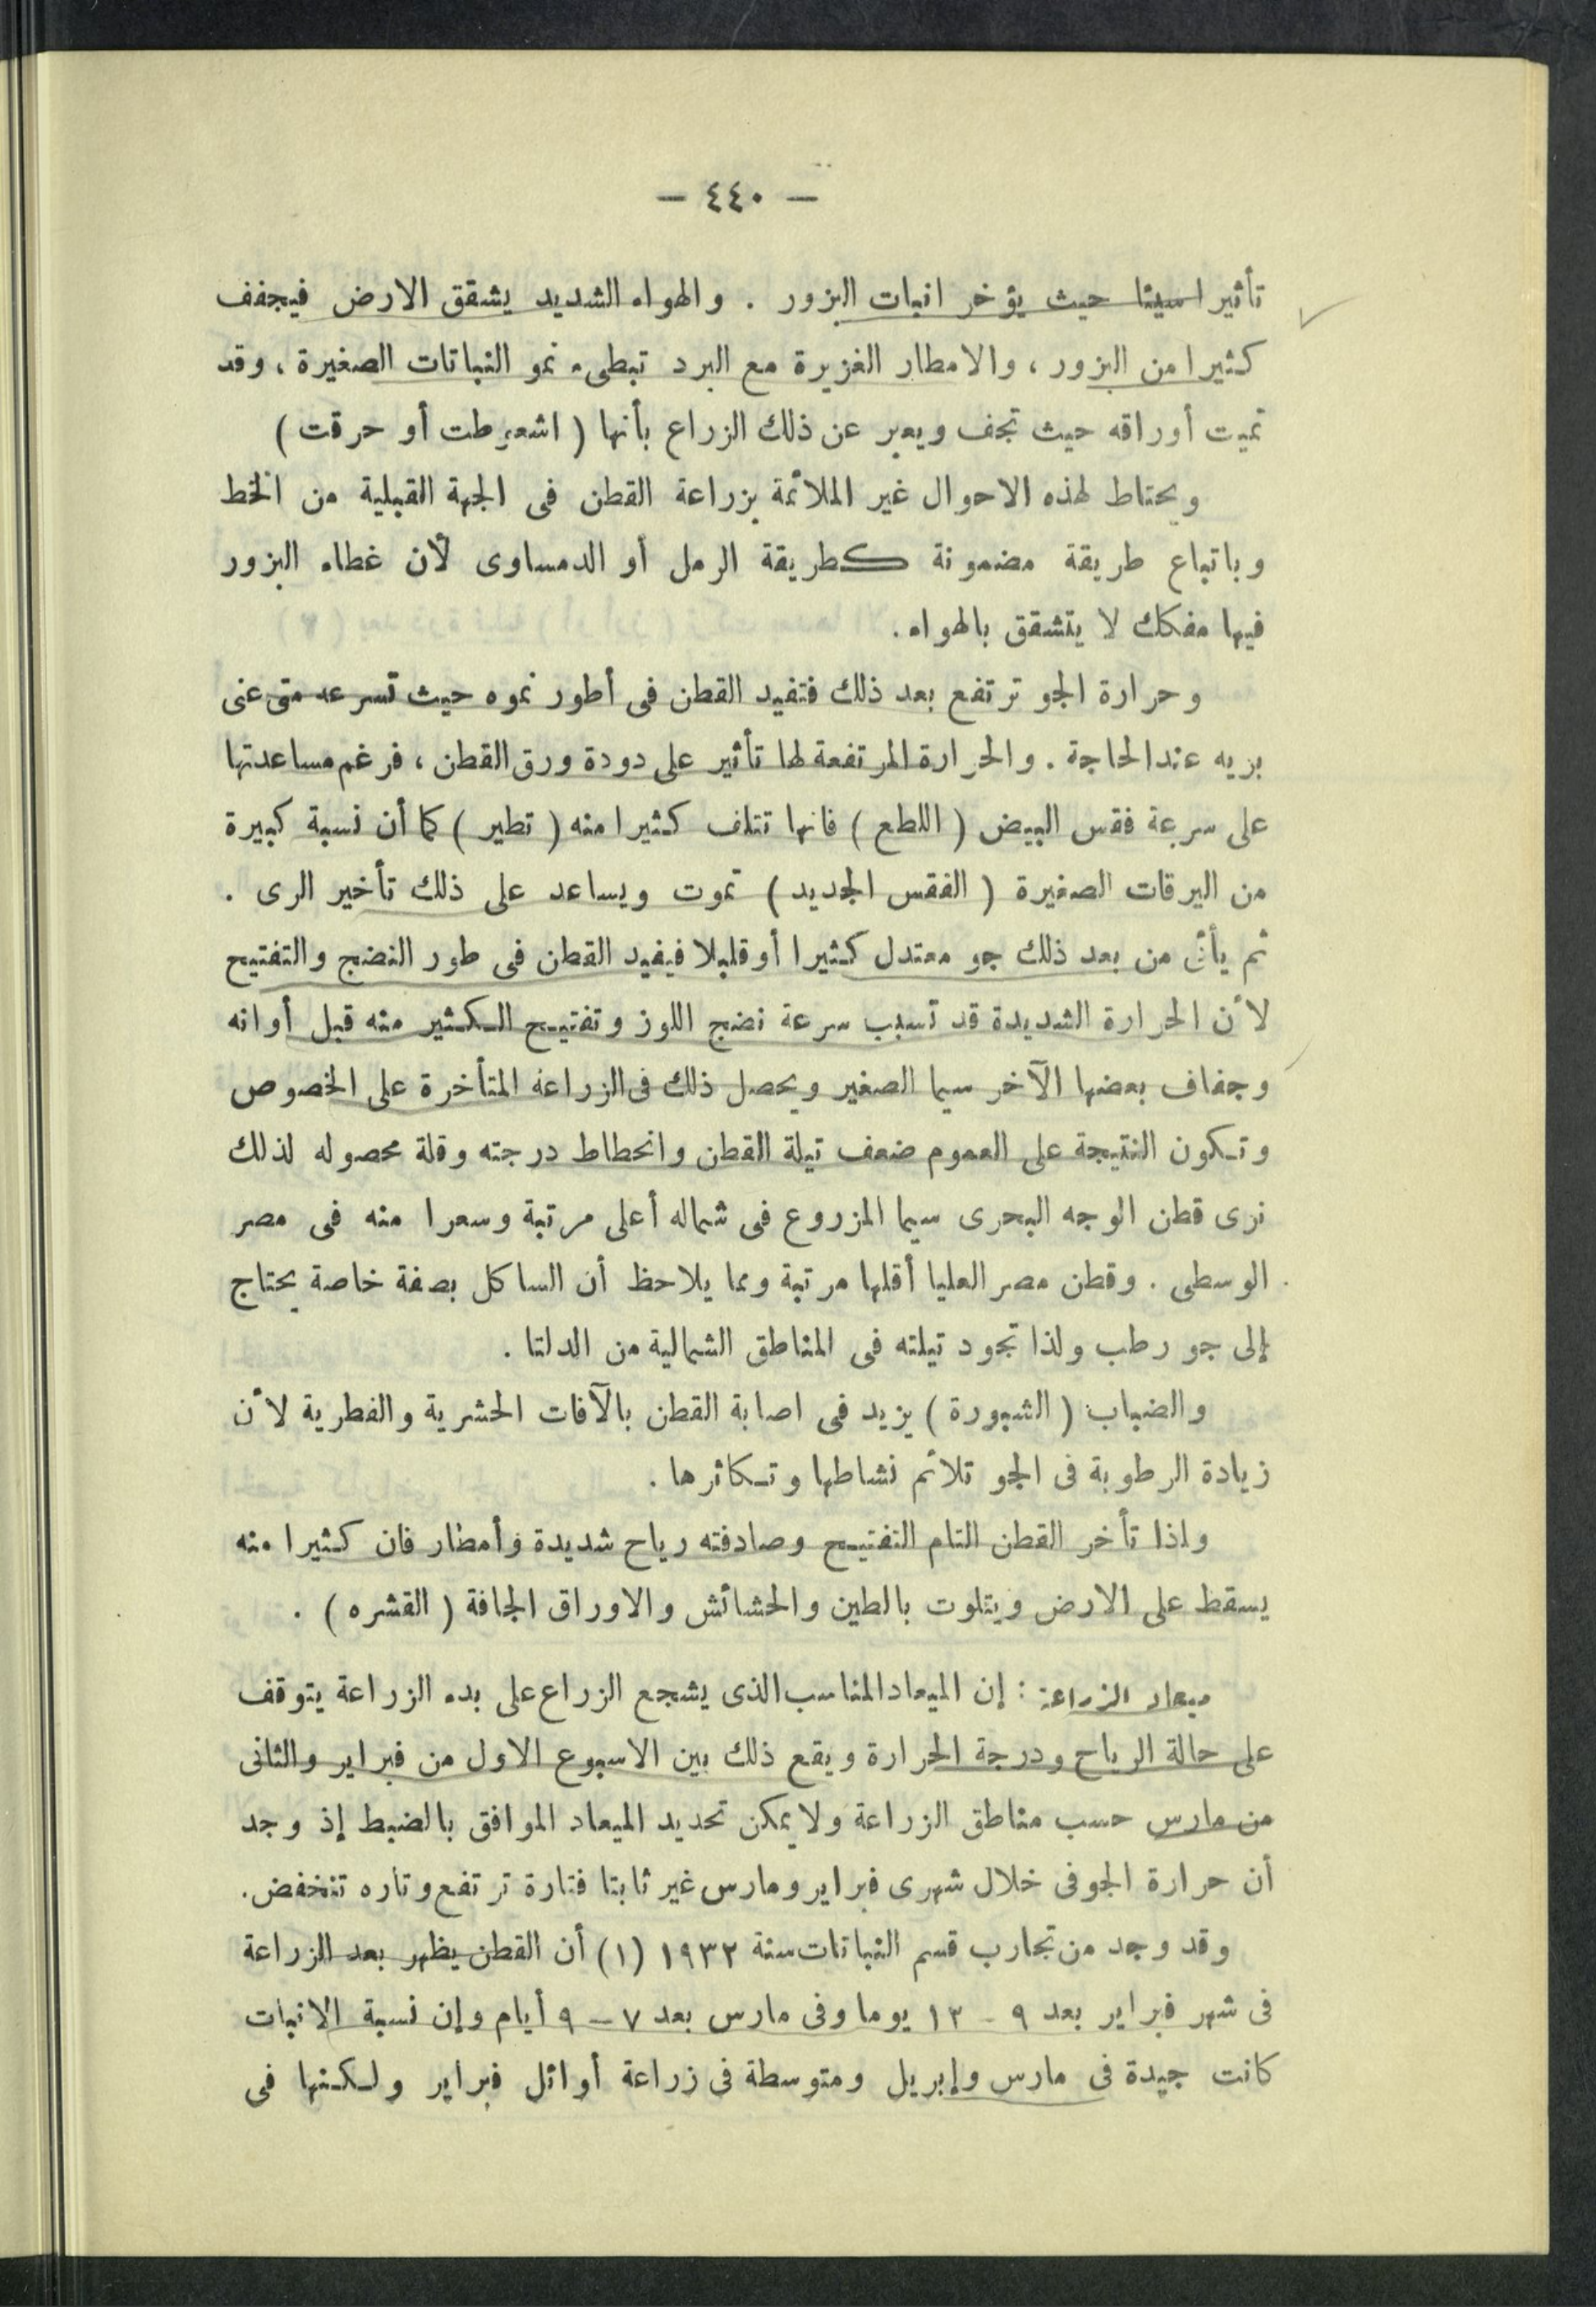 — ٤٤٠ —
تأثيرا سيئا حيث يؤخر انبات البزور . والهواء الشديد يشقق الارض فيجفف
كثيرا من البزور ، والامطار الغزيرة مع البرد تبطىء نمو النباتات الصغيرة ، وقد
تميت أوراقه حيث تجف ويعبر عن ذلك الزراع بأنها ( اشعرطت أو حرقت )
ويحتاط لهذه الاحوال غير الملائمة بزراعة القطن فى الجهة القبلية من الخط
وباتباع طريقة مضمونة كطريقة الرمل أو الدمساوى لأن غطاء البزور
فيها مفكك لا يتشقق بالهواء .
وحرارة الجو ترتفع بعد ذلك فتفيد القطن فى أطور نموه حيث تسرعه متى عنى
بريه عند الحاجة . والحرارة المرتفعة لها تأثير على دودة ورق القطن ، فرغم مساعدتها
على سرعة فقس البيض ( اللطع ) فانها تتلف كثيرا منه ( تطير ) كما أن نسبة كبيرة
من اليرقات الصغيرة ( الفقس الجديد ) تموت ويساعد على ذلك تأخير الرى .
ثم يأتى من بعد ذلك جو معتدل كثيرا أو قليلا فيفيد القطن فى طور النضج والتفتيح
لأن الحرارة الشديدة قد تسبب سرعة نضج اللوز وتفتيح الكثير منه قبل أوانه
وجفاف بعضها الآخر سيما الصغير ويحصل ذلك فى الزراعة المتأخرة على الخصوص
وتكون النتيجة على العموم ضعف تيلة القطن وانحطاط درجته وقلة محصوله لذلك
نرى قطن الوجه البحرى سيما المزروع فى شماله أعلى مرتبة وسعرا منه فى مصر
الوسطى . وقطن مصر العليا أقلها مرتبة ومما يلاحظ أن الساكل بصفة خاصة يحتاج
إلى جو رطب ولذا تجود تيلته فى المناطق الشمالية من الدلتا .
والضباب ( الشبورة ) يزيد فى اصابة القطن بالآفات الحشرية والفطرية لأن
زيادة الرطوبة فى الجو تلائم نشاطها وتكاثرها .
واذا تأخر القطن التام التفتيح وصادفته رياح شديدة وأمطار فان كثيرا منه
يسقط على الارض ويتلوت بالطين والحشائش والاوراق الجافة ( القشره ) .
ميعاد الزراعة : إن الميعاد المناسب الذى يشجع الزراع على بدء الزراعة يتوقف
على حالة الرياح ودرجة الحرارة ويقع ذلك بين الاسبوع الاول من فبراير والثانى
من مارس حسب مناطق الزراعة ولا يمكن تحديد الميعاد الموافق بالضبط إذ وجد
أن حرارة الجو فى خلال شهرى فبراير ومارس غير ثابتا فتارة ترتفع وتاره تنخفض .
وقد وجد من تجارب قسم النباتات سنة ١٩٣٢ (١) أن القطن يظهر بعد الزراعة
فى شهر فبراير بعد ٩ - ١٣ يوما وفى مارس بعد ٧ – ٩ أيام وإن نسبة الانبات
كانت جيدة فى مارس وإبريل ومتوسطة فى زراعة أوائل فبراير ولكنها فى